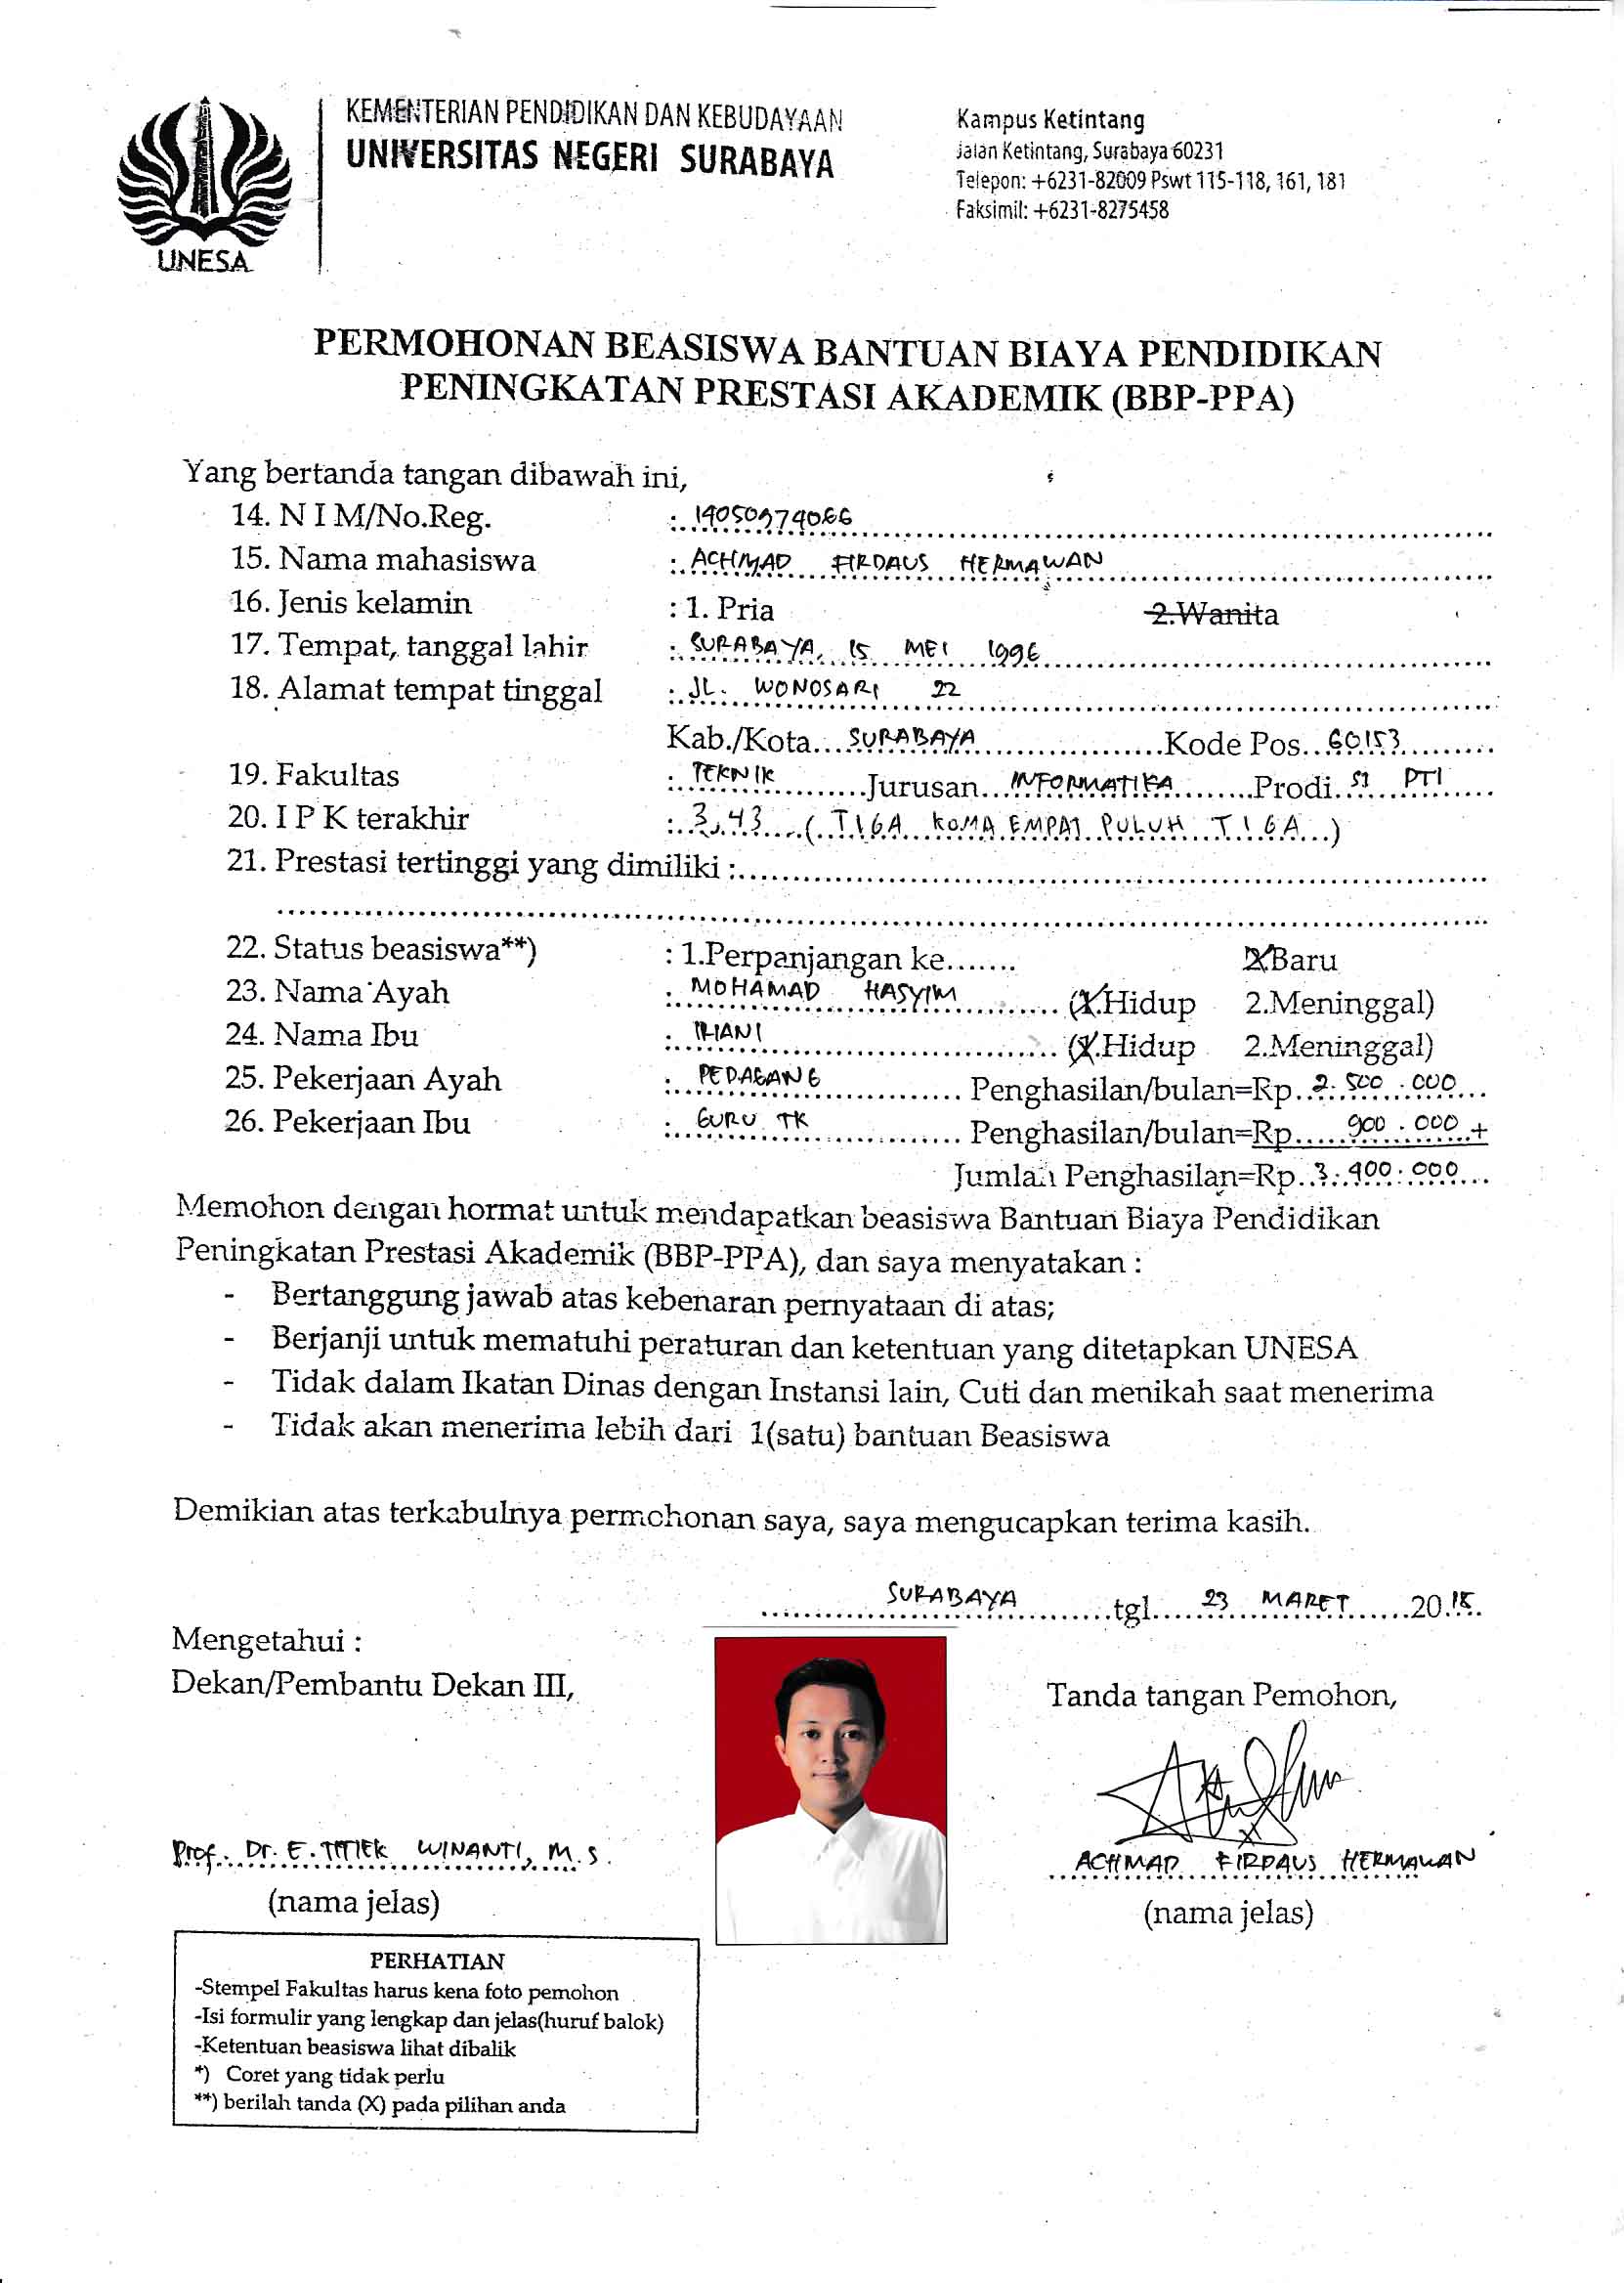 KEMENTERIAN PENDIDIKAN DAN KEBUDAYAAN
UNIVERSITAS NEGERI SURABAYA
UNESA
Kampus Ketintang
Jalan Ketintang, Surabaya 60231
Telepon: +6231-82009 Pswt 115-118, 161, 181
Faksimil: +6231-8275458
PERMOHONAN BEASISWA BANTUAN BIAYA PENDIDIKAN
PENINGKATAN PRESTASI AKADEMIK (BBP-PPA)
Yang bertanda tangan dibawah ini,
14. N I M/No.Reg. : 14050974066
15. Nama mahasiswa : ACHMAD FIRDAUS HERMAWAN
16. Jenis kelamin : 1. Pria 2.Wanita
17. Tempat, tanggal lahir : SURABAYA, 15 MEI 1996
18. Alamat tempat tinggal : JL. WONOSARI 22
Kab./Kota... SURABAYA ...Kode Pos...60153...
19. Fakultas : TEKNIK ...Jurusan... INFORMATIKA ...Prodi...S1 PTI...
20. I P K terakhir : 3,43 (TIGA KOMA EMPAT PULUH TIGA)
21. Prestasi tertinggi yang dimiliki :
22. Status beasiswa**) : 1.Perpanjangan ke....... X Baru
23. Nama Ayah : MOHAMAD HASYIM (X.Hidup 2.Meninggal)
24. Nama Ibu : (X.Hidup 2.Meninggal)
25. Pekerjaan Ayah : PEDAGANG Penghasilan/bulan=Rp...2.500.000...
26. Pekerjaan Ibu : GURU TK Penghasilan/bulan=Rp...900.000...+
Jumlah Penghasilan=Rp...3.400.000...
Memohon dengan hormat untuk mendapatkan beasiswa Bantuan Biaya Pendidikan
Peningkatan Prestasi Akademik (BBP-PPA), dan saya menyatakan :
- Bertanggung jawab atas kebenaran pernyataan di atas;
- Berjanji untuk mematuhi peraturan dan ketentuan yang ditetapkan UNESA
- Tidak dalam Ikatan Dinas dengan Instansi lain, Cuti dan menikah saat menerima
- Tidak akan menerima lebih dari 1(satu) bantuan Beasiswa
Demikian atas terkabulnya permohonan saya, saya mengucapkan terima kasih.
SURABAYA ...tgl... 23 MARET ...20
Mengetahui :
Dekan/Pembantu Dekan III,
Tanda tangan Pemohon,
Prof. Dr. E. TITIEK WINANTI, M.S.
ACHMAD FIRDAUS HERMAWAN
(nama jelas)
(nama jelas)
PERHATIAN
-Stempel Fakultas harus kena foto pemohon
-Isi formulir yang lengkap dan jelas(huruf balok)
-Ketentuan beasiswa lihat dibalik
*) Coret yang tidak perlu
**) berilah tanda (X) pada pilihan anda